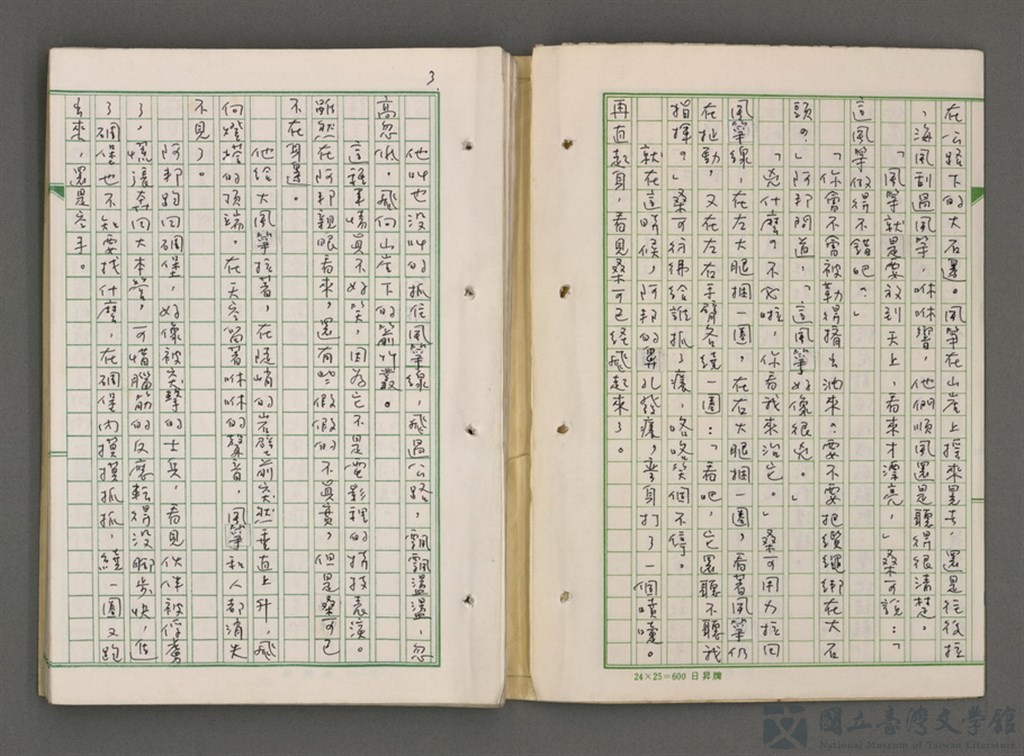 在公路下的大石邊。風箏在山崖上搖來晃去,還是往後拉
,海風刮過風箏,咻咻響,他們順風還是聽得很清楚。
「風箏就是要放到天上,看來才漂亮,」桑可說:「
這風箏做得不錯吧?」
「你會不會被勒得擠出沁來?要不要把纜繩綁在大石
頭?」阿邦問道,「這風箏好像很兇。」
「兇什麼?不必啦,你看我來治它。」桑可用力拉回
風箏線,在左大腿捆一圈,在右大腿捆一圈,看著風箏仍
在扯動,又在左右手臂各繞一圈:「看吧,它還聽不聽我
指揮?」桑可彷彿給誰抓了癢,咯咯笑個不停。
就在這時候,阿邦的鼻孔發癢,彎身打了一個噴嚏。
再直起身,看見桑可已經飛起來了。
24×25=600 日昇牌
3.
他叫也沒叫的抓住風箏線,飛過公路,飄飄盪盪,忽
高忽低,飛向山崖下的箭竹叢。
這種事情真不好笑,因為它不是電影裡的特技表演。
雖然在阿邦親眼看來,還有些假假的不真實,但是桑可已
不在身邊。
他給大風箏拉著,在陡峭的岩壁前突然垂直上升,飛
向燈塔的頂端。在天空留著咻咻的聲音,風箏和人都消失
不見了。
阿邦跑回碉堡,好像被突擊的士兵,看見伙伴被俘虜
了,慌張奔回大本營,可惜腦筋的反應轉得沒腳步快,他
了碉堡也不知要找什麼,在碉堡內摸摸抓抓,繞一圈又跑
出來,還是空手。
國立臺灣文學館
National Museum of Taiwan Literature